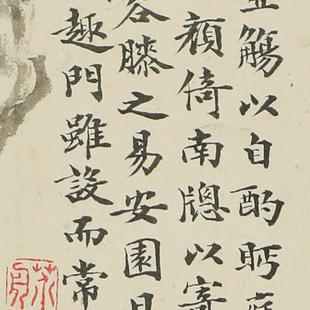 觴以自酌眄庭
顏倚南牕以寄
容膝之易安園日
趣門雖設而常